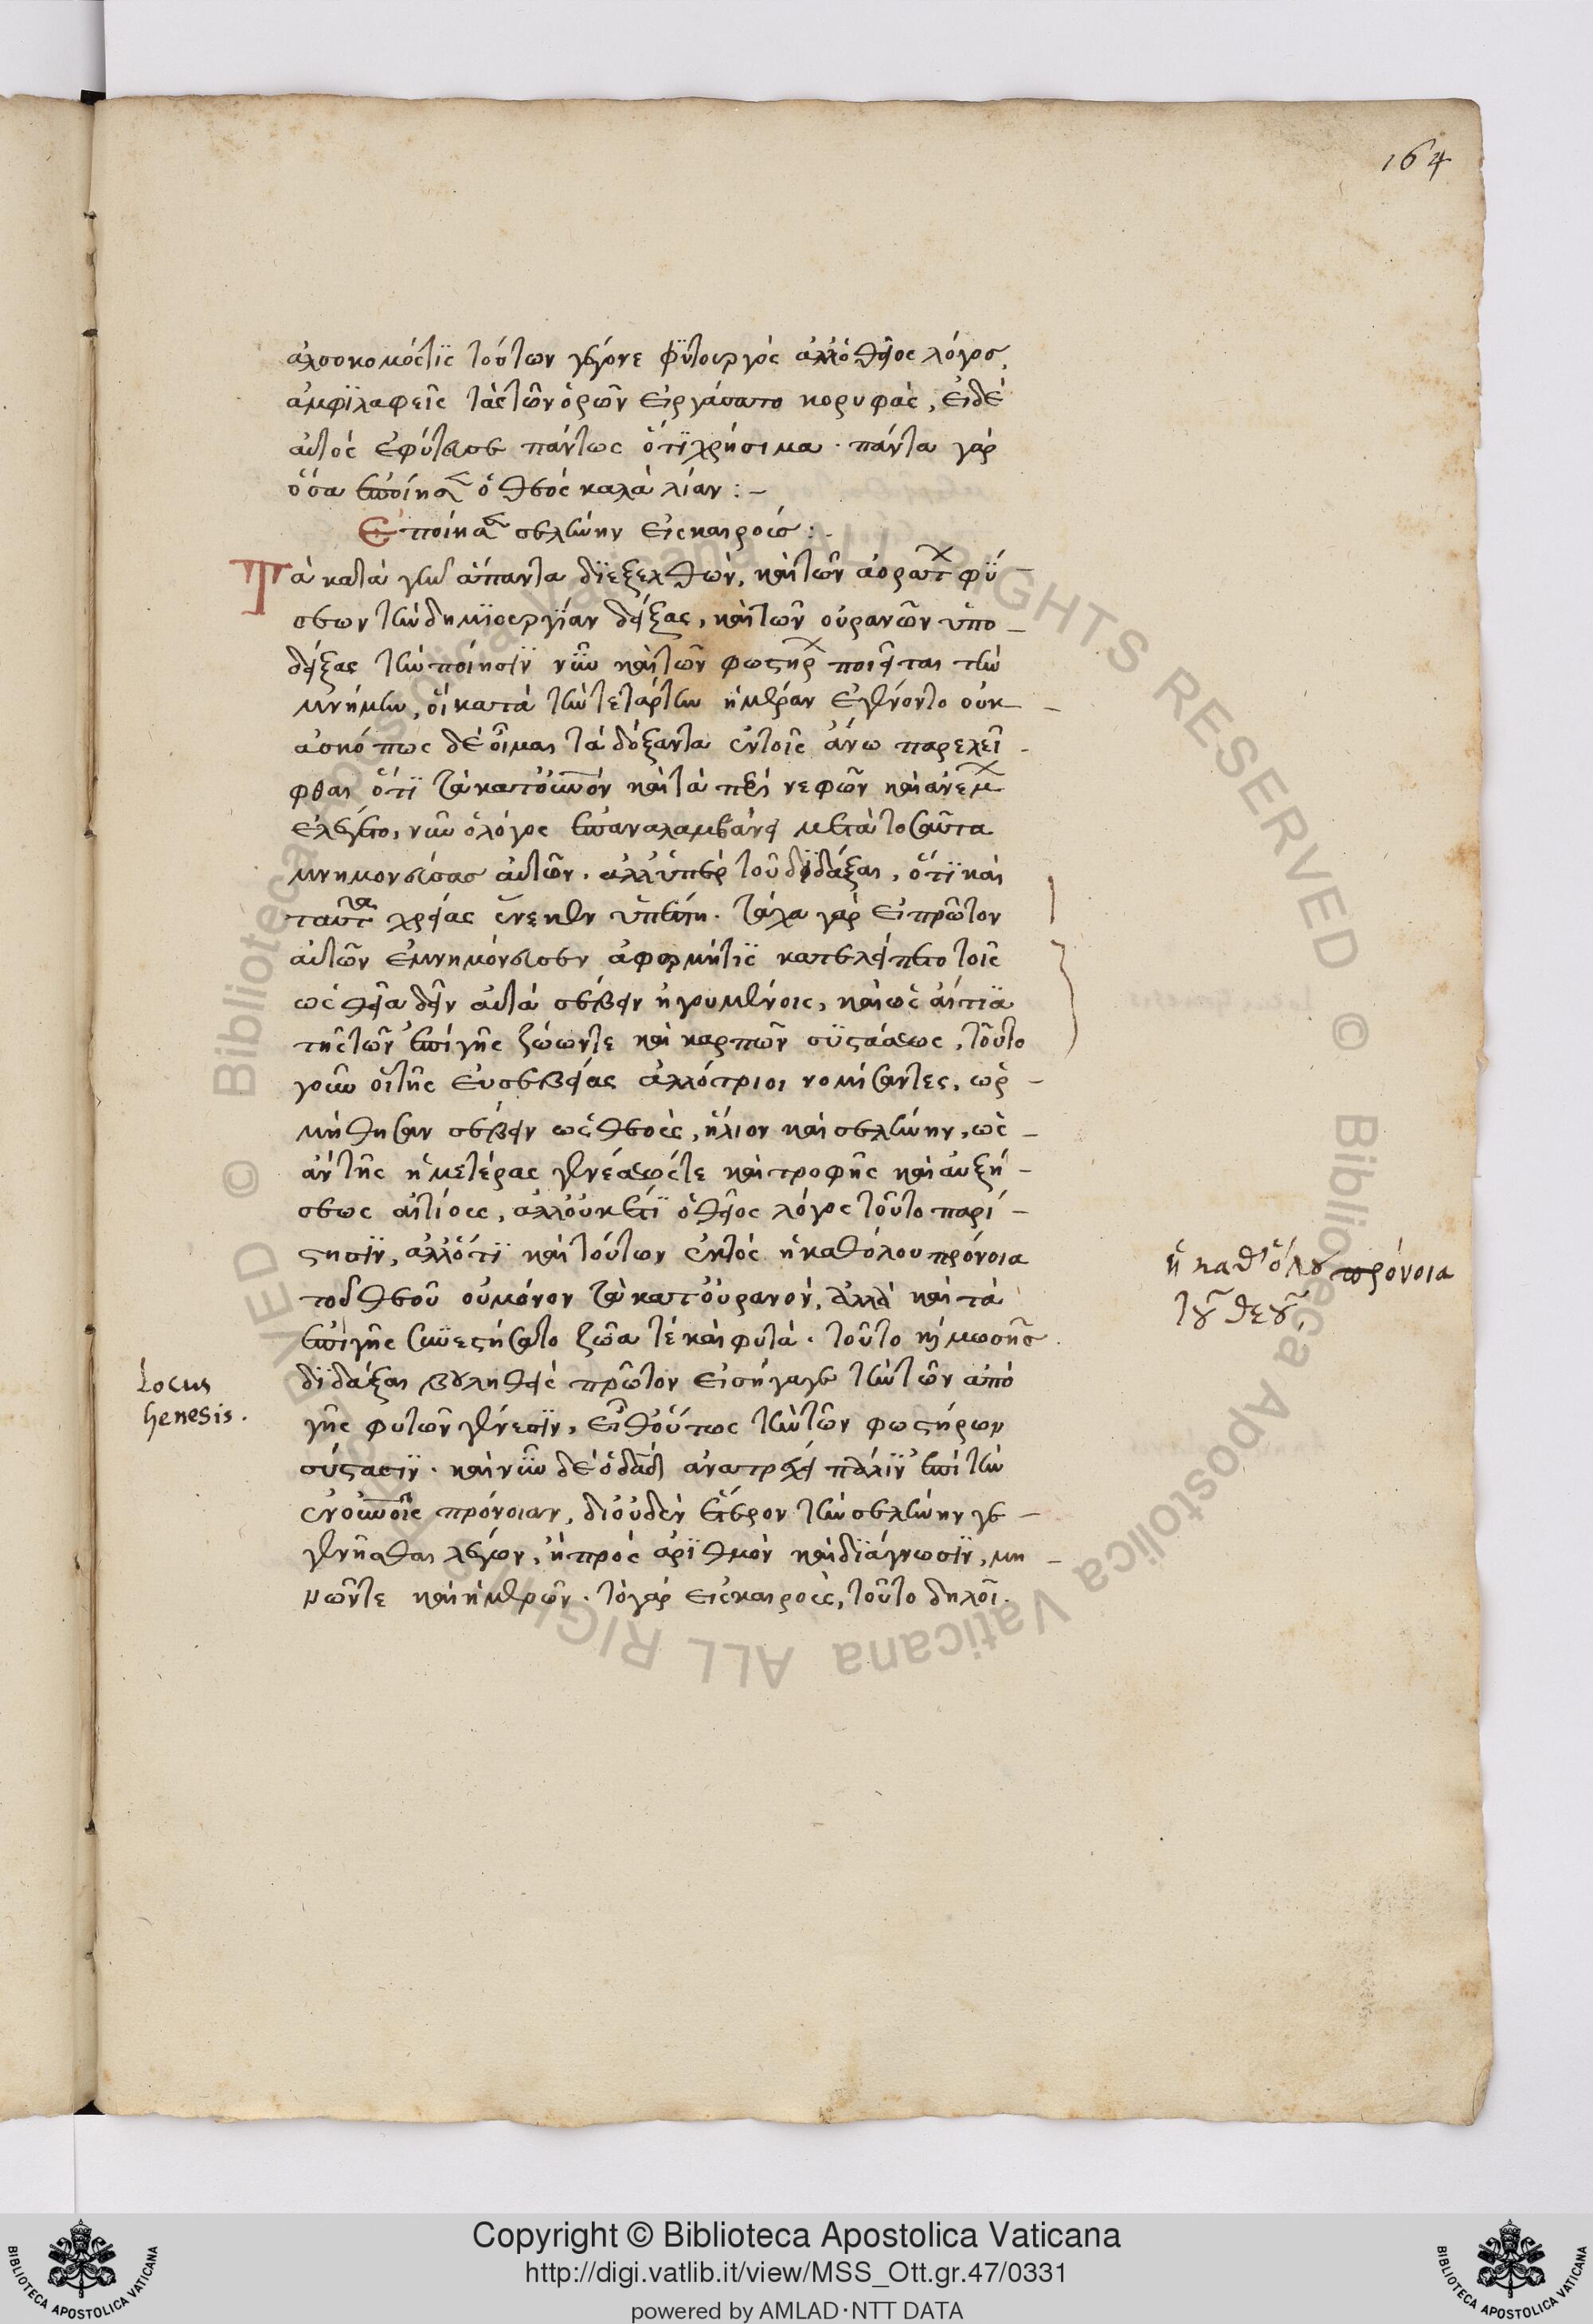 164
ἀλσοκομός τϊς τούτων γέγονε φϋτουργὸς ἀλλ ὁ θεῖος λόγος,
ἀμφϊλαφεῖς τὰς τῶν ὀρῶν εἰργάσατο κορυφὰς, εἰ δὲ
αὐτὸς ἐφύτευσε πάντως ὅτϊ χρήσιμα · πάντα γὰρ
ὅσα ἐποίησεν ὁ θεὸς καλὰ λίαν :-
Ἐποίησε σελήνην εἰς καιρούς :-
Τὰ κατὰ γῆν ἅπαντα δϊεξελθὼν, καὶ τῶν ἀοράτων φΰ-
σεων τὴν δημϊουργϊίαν δείξας, καὶ τῶν οὐρανῶν ὑπο-
δείξας τὴν ποίησϊν νῦν καὶ τῶν φωστήρων ποιεῖται τὴν
μνήμην, οἳ κατὰ τὴν τετάρτην ἡμέραν ἐγένοντο οὐκ-
ἀσκόπως δὲ οἶμαι τὰ δόξαντα ἐν τοῖς ἄνω παρελεῖ-
φθαι ὅτϊ τὰ κατ οὐνὸν καὶ τὰ περὶ νεφῶν καὶ ἀνέμων
ἐλέγετο, νῦν ὁ λόγος ἐπαναλαμβάνει μετὰ τοσαῦτα
μνημονεύσας αὐτῶν · ἀλλ ὑπὲρ τοῦ δϊδάξαι, ὅτϊ καὶ
ταῦτα χρείας ἕνεκεν ὑπέστη · τάχα γὰρ εἰ πρῶτον
αὐτῶν ἐμνημόνευσεν ἀφορμή τϊς κατελείπετο τοῖς
ὡς θεῖα δεῖν αὐτὰ σέβειν ἡγουμένοις, καὶ ὡς αἴτϊα
τῆς τῶν ἐπὶ γῆς ζώων τε καὶ καρπῶν συστάσεως, τοῦτο
γοῦν οἱ τῆς εὐσεβείας ἀλλότριοι νομίσαντες, ὡρ-
μήθησαν σέβειν ὡς θεοὺς, ἥλιον καὶ σελήνην, ὡς-
ἂν τῆς ἡμετέρας γενέσεώς τε καὶ τροφῆς καὶ αὐξή-
σεως αἰτίους, ἀλλ οὐκ ἔτϊ ὁ θεῖος λόγος τοῦτο παρί-
στησϊν, ἀλλ ὅτϊ καὶ τούτων ἐκτὸς ἡ καθόλου πρόνοια
τοῦ θεοῦ οὐ μόνον τὰ κατ οὐρανὸν, ἀλλὰ καὶ τὰ
ἐπὶ γῆς συνεστήσατο ζῶα τὲ καὶ φυτὰ · τοῦτο καὶ μωσῆς
δϊδάξαι βουληθεὶς πρῶτον εἰσήγαγε τὴν τῶν ἀπὸ
γῆς φυτῶν γένεσϊν, εἶθ οὕτως τὴν τῶν φωστήρων
σύστασϊν · καὶ νῦν δὲ ὁ δαδ ἀνατρέχει πάλϊν ἐπὶ τὴν
ἐν οὐνοῖς πρόνοιαν, δι οὐδὲν ἕτερον τὴν σελήνην γε-
γενῆσθαι λέγων, ἢ πρὸς ἀρϊθμὸν καὶ δϊάγνωσϊν, μη-
νῶν τε καὶ ἡμερῶν · τὸ γὰρ εἰς καιροὺς, τοῦτο δηλοῖ.
ἡ καθ' ὅλου πρόνοια
τοῦ θεοῦ
Locus
Genesis.
Copyright © Biblioteca Apostolica Vaticana
http://digi.vatlib.it/view/MSS_Ott.gr.47/0331
powered by AMLAD·NTT DATA
BIBLIOTECA APOSTOLICA VATICANA
BIBLIOTECA APOSTOLICA VATICANA
© Biblioteca Apostolica Vaticana ALL RIGHTS RESERVED © Biblioteca Apostolica Vaticana ALL RIGHTS RESERVED